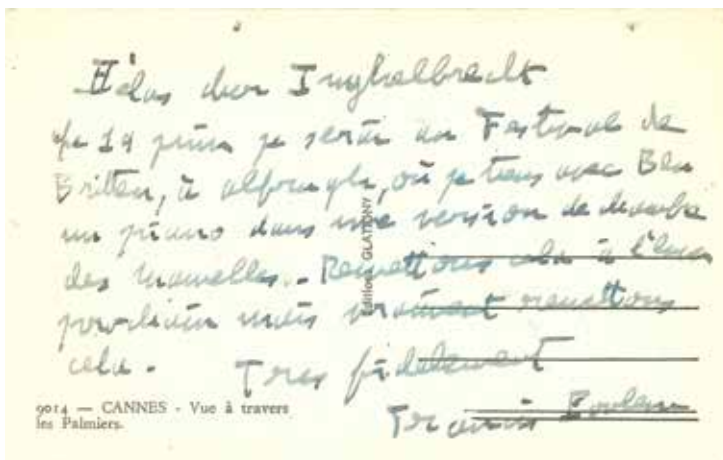 Hélas cher Inghelbrecht
le 19 juin je serai au Festival de
Britten, à où je tiens avec Ben
un piano dans une version de chambre
des Mamelles. - Remettons cela à l'hiver
prochain mais vraiment remettons
cela. - Très fidèlement
Francis Poulenc
Editions GLATIGNY
9014 — CANNES - Vue à travers
les Palmiers.